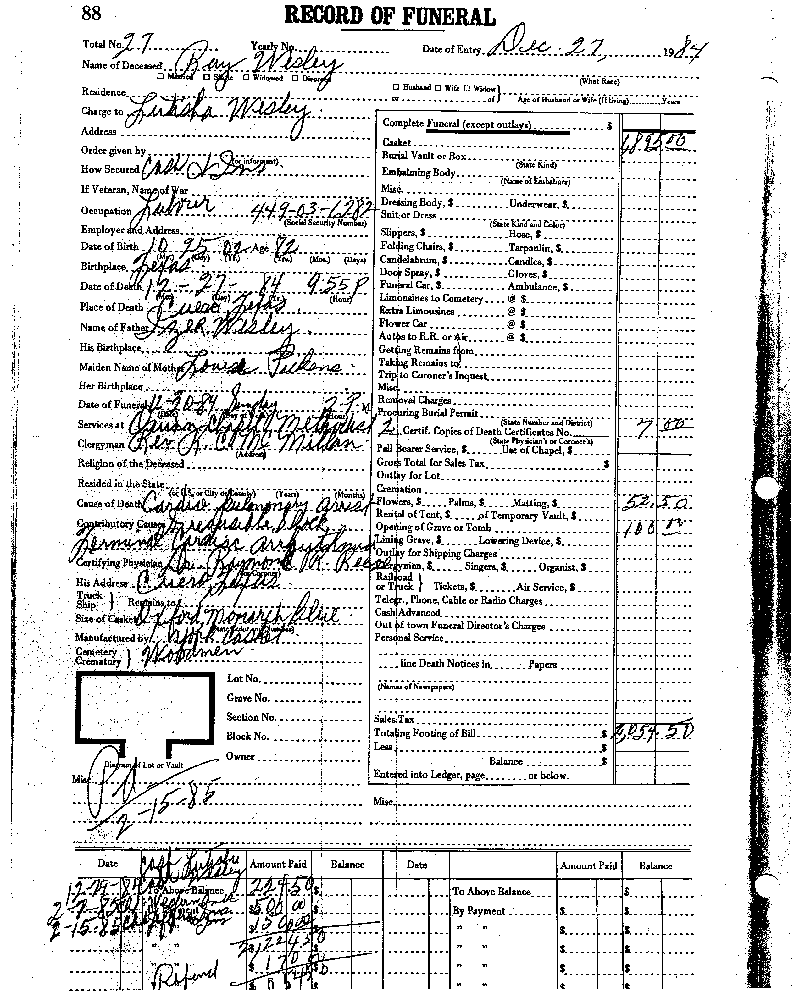 88
RECORD OF FUNERAL
Total No. 27 Yearly No. Date of Entry Dec 27, 1984
Name of Deceased Ray Wesley
☐ Married ☐ Single ☐ Widowed ☐ Divorced (What Race)
Residence ☐ Husband ☐ Wife ☐ Widow or of Age of Husband or Wife (If living) Years
Charge to Wesley
Address
Order given by
(or informant)
How Secured Cash
If Veteran, Name of War
Occupation 449-03-1282
(Social Security Number)
Employer and Address
Date of Birth 10 25 02 Age 82
(Mo.) (Day) (Yr.) (Yrs.) (Mos.) (Days)
Birthplace Texas
Date of Death 12-27-84 9:55 P
(Day) (Hour)
Place of Death Cuero Texas
Name of Father Wesley
His Birthplace
Maiden Name of Mother Pickens
Her Birthplace
Date of Funeral 12-30-84 Sunday
(Hour)
Services at Chapel Methodist
Clergyman Rev. McMillan
(Address)
Religion of the Deceased
Resided in the State
(or U.S. or City or County) (Years) (Months)
Cause of Death Cardiac Pulmonary arrest
Contributory Causes block
Terminal Cardiac
Certifying Physician Dr. Raymond R.
His Address Cuero Texas
Truck
Ship Remains to
Size of Casket Oxford Monarch Blue
Manufactured by York Casket
Cemetery
Crematory Woodmen
Lot No.
Grave No.
Section No.
Block No.
Owner
Diagram of Lot or Vault
Misc.
Pd
2-15-85
Complete Funeral (except outlays) $
Casket 1895 00
Burial Vault or Box
(State Kind)
Embalming Body
(Name of Embalmer)
Misc.
Dressing Body, $ Underwear, $
Suit or Dress
(State Kind and Color)
Slippers, $ Hose, $
Folding Chairs, $ Tarpaulin, $
Candelabrum, $ Candles, $
Door Spray, $ Gloves, $
Funeral Car, $ Ambulance, $
Limousines to Cemetery @ $
Extra Limousines @ $
Flower Car @ $
Autos to R.R. or Air @ $
Getting Remains from
Taking Remains to
Trip to Coroner's Inquest
Misc.
Removal Charges
Procuring Burial Permit
(State Number and District)
2 Certif. Copies of Death Certificates No. 7 00
(State Physician's or Coroner's)
Pall Bearer Service, $ Use of Chapel, $
Gross Total for Sales Tax $
Outlay for Lot
Cremation
Flowers, $ Palms, $ Matting, $ 52.50
Rental of Tent, $ of Temporary Vault, $
Opening of Grave or Tomb 100 00
Lining Grave, $ Lowering Device, $
Outlay for Shipping Charges
Clergyman, $ Singers, $ Organist, $
Railroad
or Truck Tickets, $ Air Service, $
Telegr., Phone, Cable or Radio Charges
Cash Advanced
Out of town Funeral Director's Charges
Personal Service
line Death Notices in Papers
(Names of Newspapers)
Sales Tax
Totaling Footing of Bill $ 2,054.50
Less $
Balance $
Entered into Ledger, page or below.
Misc.
Date Amount Paid Balance Date Amount Paid Balance
12-29-84 To Above Balance $ To Above Balance $
2-7-85 By Payment $ $
2-15-85 $ " " $ $
" " $ $
Refund $ " " $ $